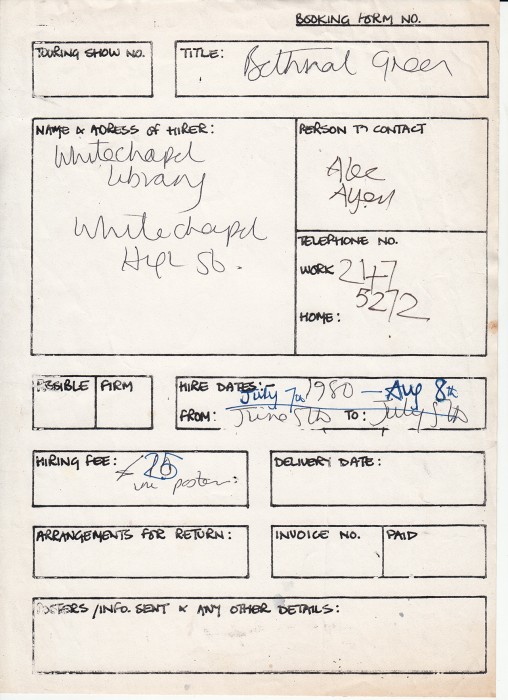 BOOKING FORM NO.
TOURING SHOW NO.
TITLE: Bethnal Green
NAME & ADRESS OF HIRER:
Whitechapel
Library
Whitechapel
High St.
PERSON TO CONTACT
Alec
TELEPHONE NO.
WORK 247
5272
HOME:
POSSIBLE FIRM
HIRE DATES:-
July 7th 1980 — Aug 8th
FROM: June 5th TO: July 5th
HIRING FEE: £25
posters:
DELIVERY DATE:
ARRANGEMENTS FOR RETURN:
INVOICE NO. PAID
POSTERS/INFO. SENT & ANY OTHER DETAILS: